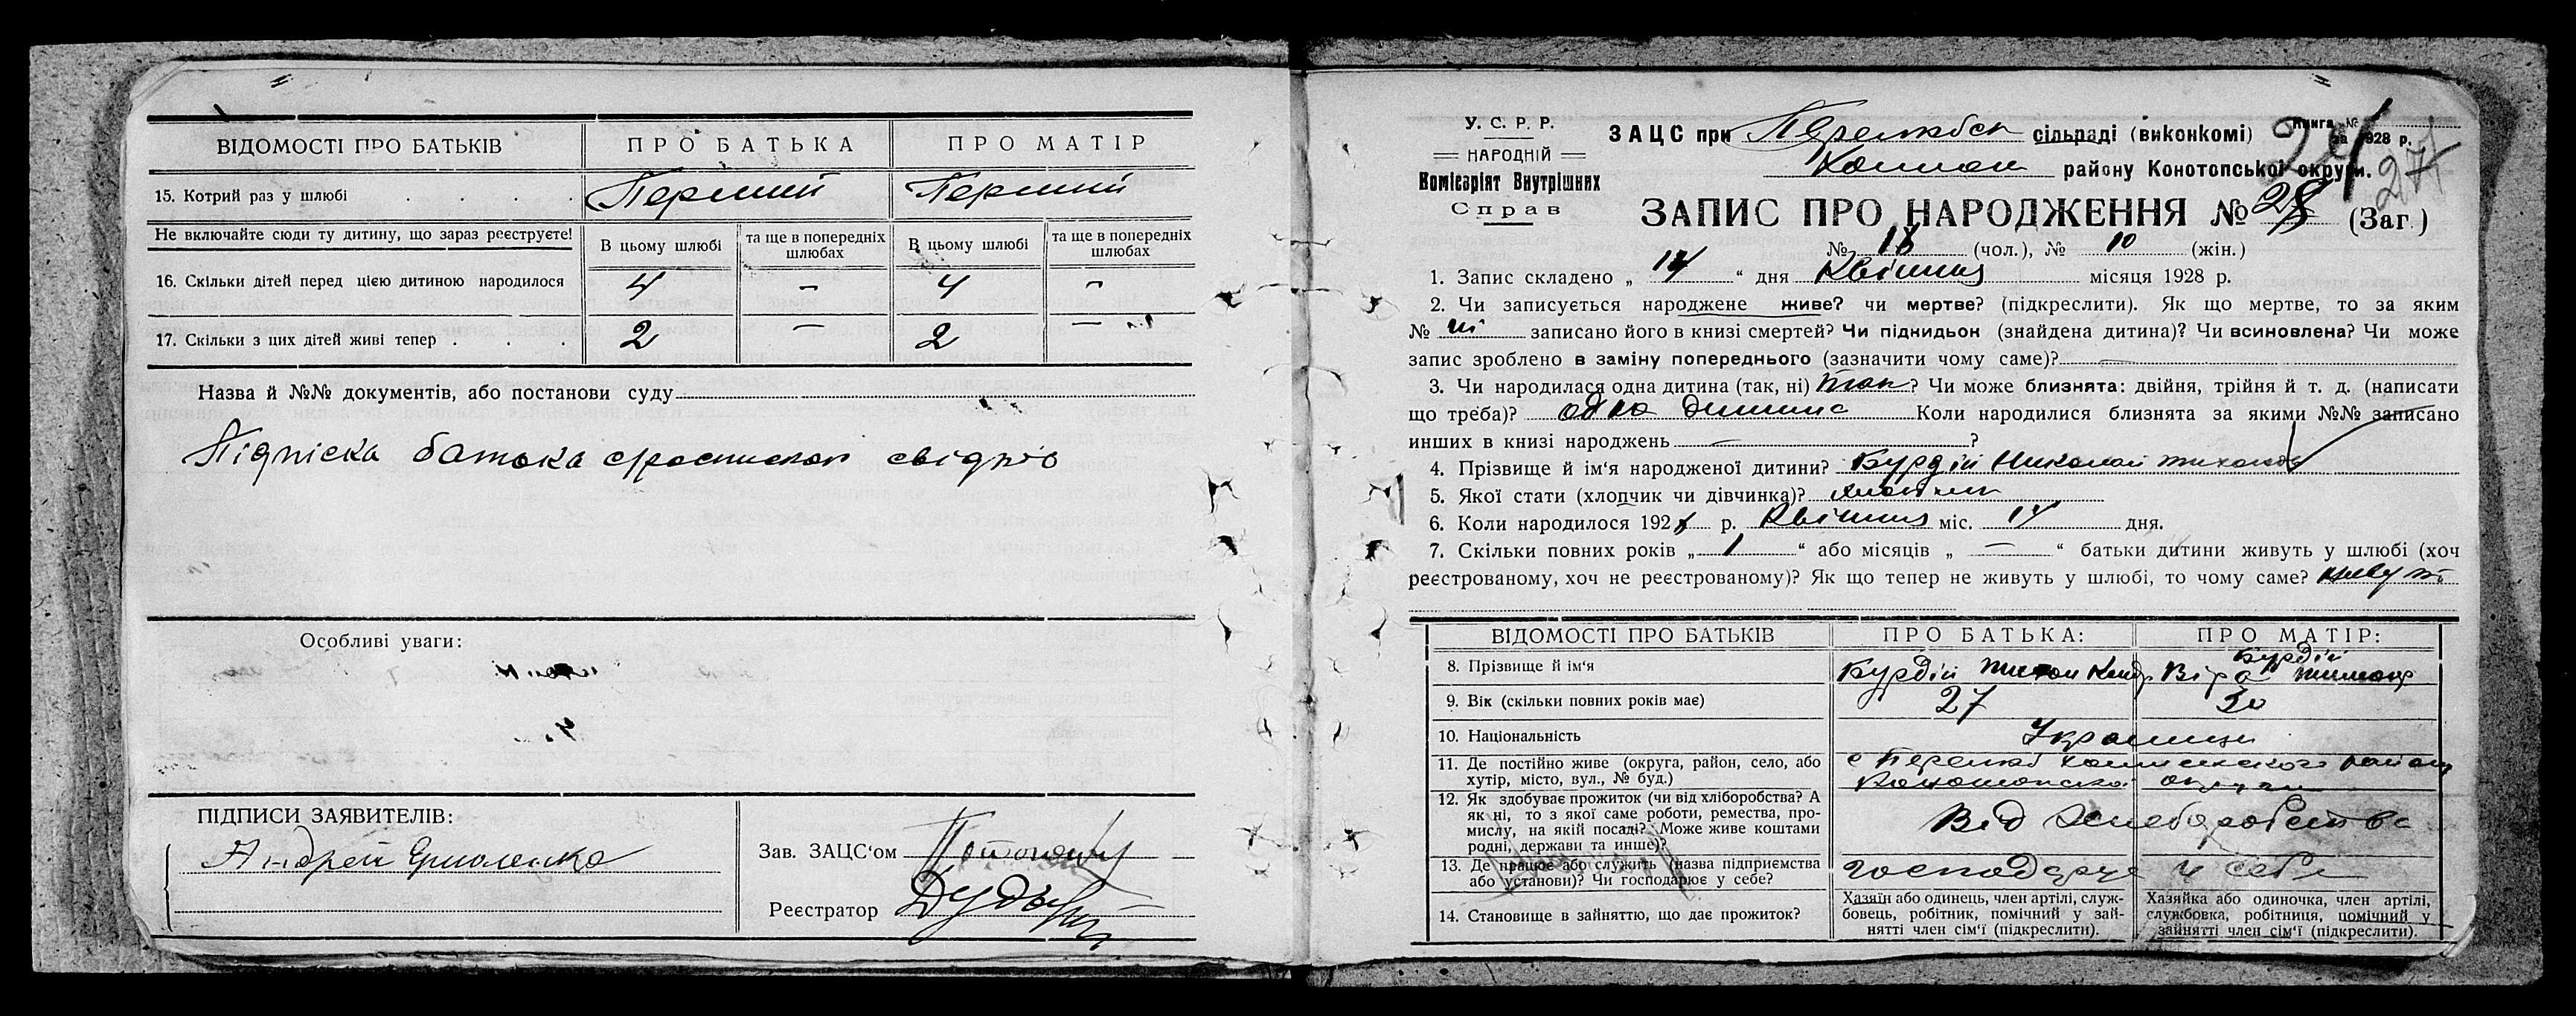 ВІДОМОСТІ ПРО БАТЬКІВ
ПРО БАТЬКА
ПРО МАТІР
15. Котрий раз у шлюбі
Перший
Перший
Не включайте сюди ту дитину, що зараз реєструєте!
В цьому шлюбі
та ще в попередніх шлюбах
В цьому шлюбі
та ще в попередніх шлюбах
16. Скільки дітей перед цією дитиною народилося
4 — 4 —
17. Скільки з цих дітей живі тепер
2 — 2 —
Назва й №№ документів, або постанови суду
Підпіска батька
Особливі уваги:
ПІДПИСИ ЗАЯВИТЕЛІВ:
Андрей Ермоленко
Зав. ЗАЦС'ом
Реєстратор
У. С. Р. Р.
НАРОДНІЙ
Комісаріят Внутрішних
Справ
ЗАЦС при сільраді (виконкомі)
Книга №
за 1928 р.
району Конотопської округи.
ЗАПИС ПРО НАРОДЖЕННЯ № 28 (Заг.)
№ 18 (чол.), № 10 (жін.)
1. Запис складено „ 14 “ дня Квітня місяця 1928 р.
2. Чи записується народжене живе? чи мертве? (підкреслити). Як що мертве, то за яким
№ ні записано його в книзі смертей? Чи піднидьок (знайдена дитина)? Чи всиновлена? Чи може
запис зроблено в заміну попереднього (зазначити чому саме)? —
3. Чи народилася одна дитина (так, ні) так? Чи може близнята: двійня, трійня й т. д. (написати
що треба)? одна дитина Коли народилися близнята за якими №№ записано
инших в книзі народжень — ?
4. Прізвище й ім'я народженої дитини? Бурдій Николай
5. Якої стати (хлопчик чи дівчинка)? хлопчик
6. Коли народилося 1928 р. Квітня міс. 14 дня.
7. Скільки повних років „ 1 “ або місяців „ — “ батьки дитини живуть у шлюбі (хоч
реєстрованому, хоч не реєстрованому)? Як що тепер не живуть у шлюбі, то чому саме? живуть
ВІДОМОСТІ ПРО БАТЬКІВ
ПРО БАТЬКА:
ПРО МАТІР:
8. Прізвище й ім'я
Бурдій Тихон
Бурдій
Віра
9. Вік (скільки повних років має)
27
30
10. Національність
Українци
11. Де постійно живе (округа, район, село, або
хутір, місто, вул., № буд.)
района
Конотопської округи
12. Як здобуває прожиток (чи від хліборобства? А
як ні, то з якої саме роботи, ремества, про-
мислу, на якій посаді? Може живе коштами
родні, держави та инше)?
Від Хлеборобства
13. Де працює або служить (назва підприємства
або установи)? Чи господарює у себе?
господарує у себе
14. Становище в зайняттю, що дає прожиток?
Хазяїн або одинець, член артілі, служ-
бовець, робітник, помічний у зай-
нятті член сім'ї (підкреслити).
Хазяйка або одиночка, член артілі,
службовка, робітниця, помічний у
зайнятті член сім'ї (підкреслити).